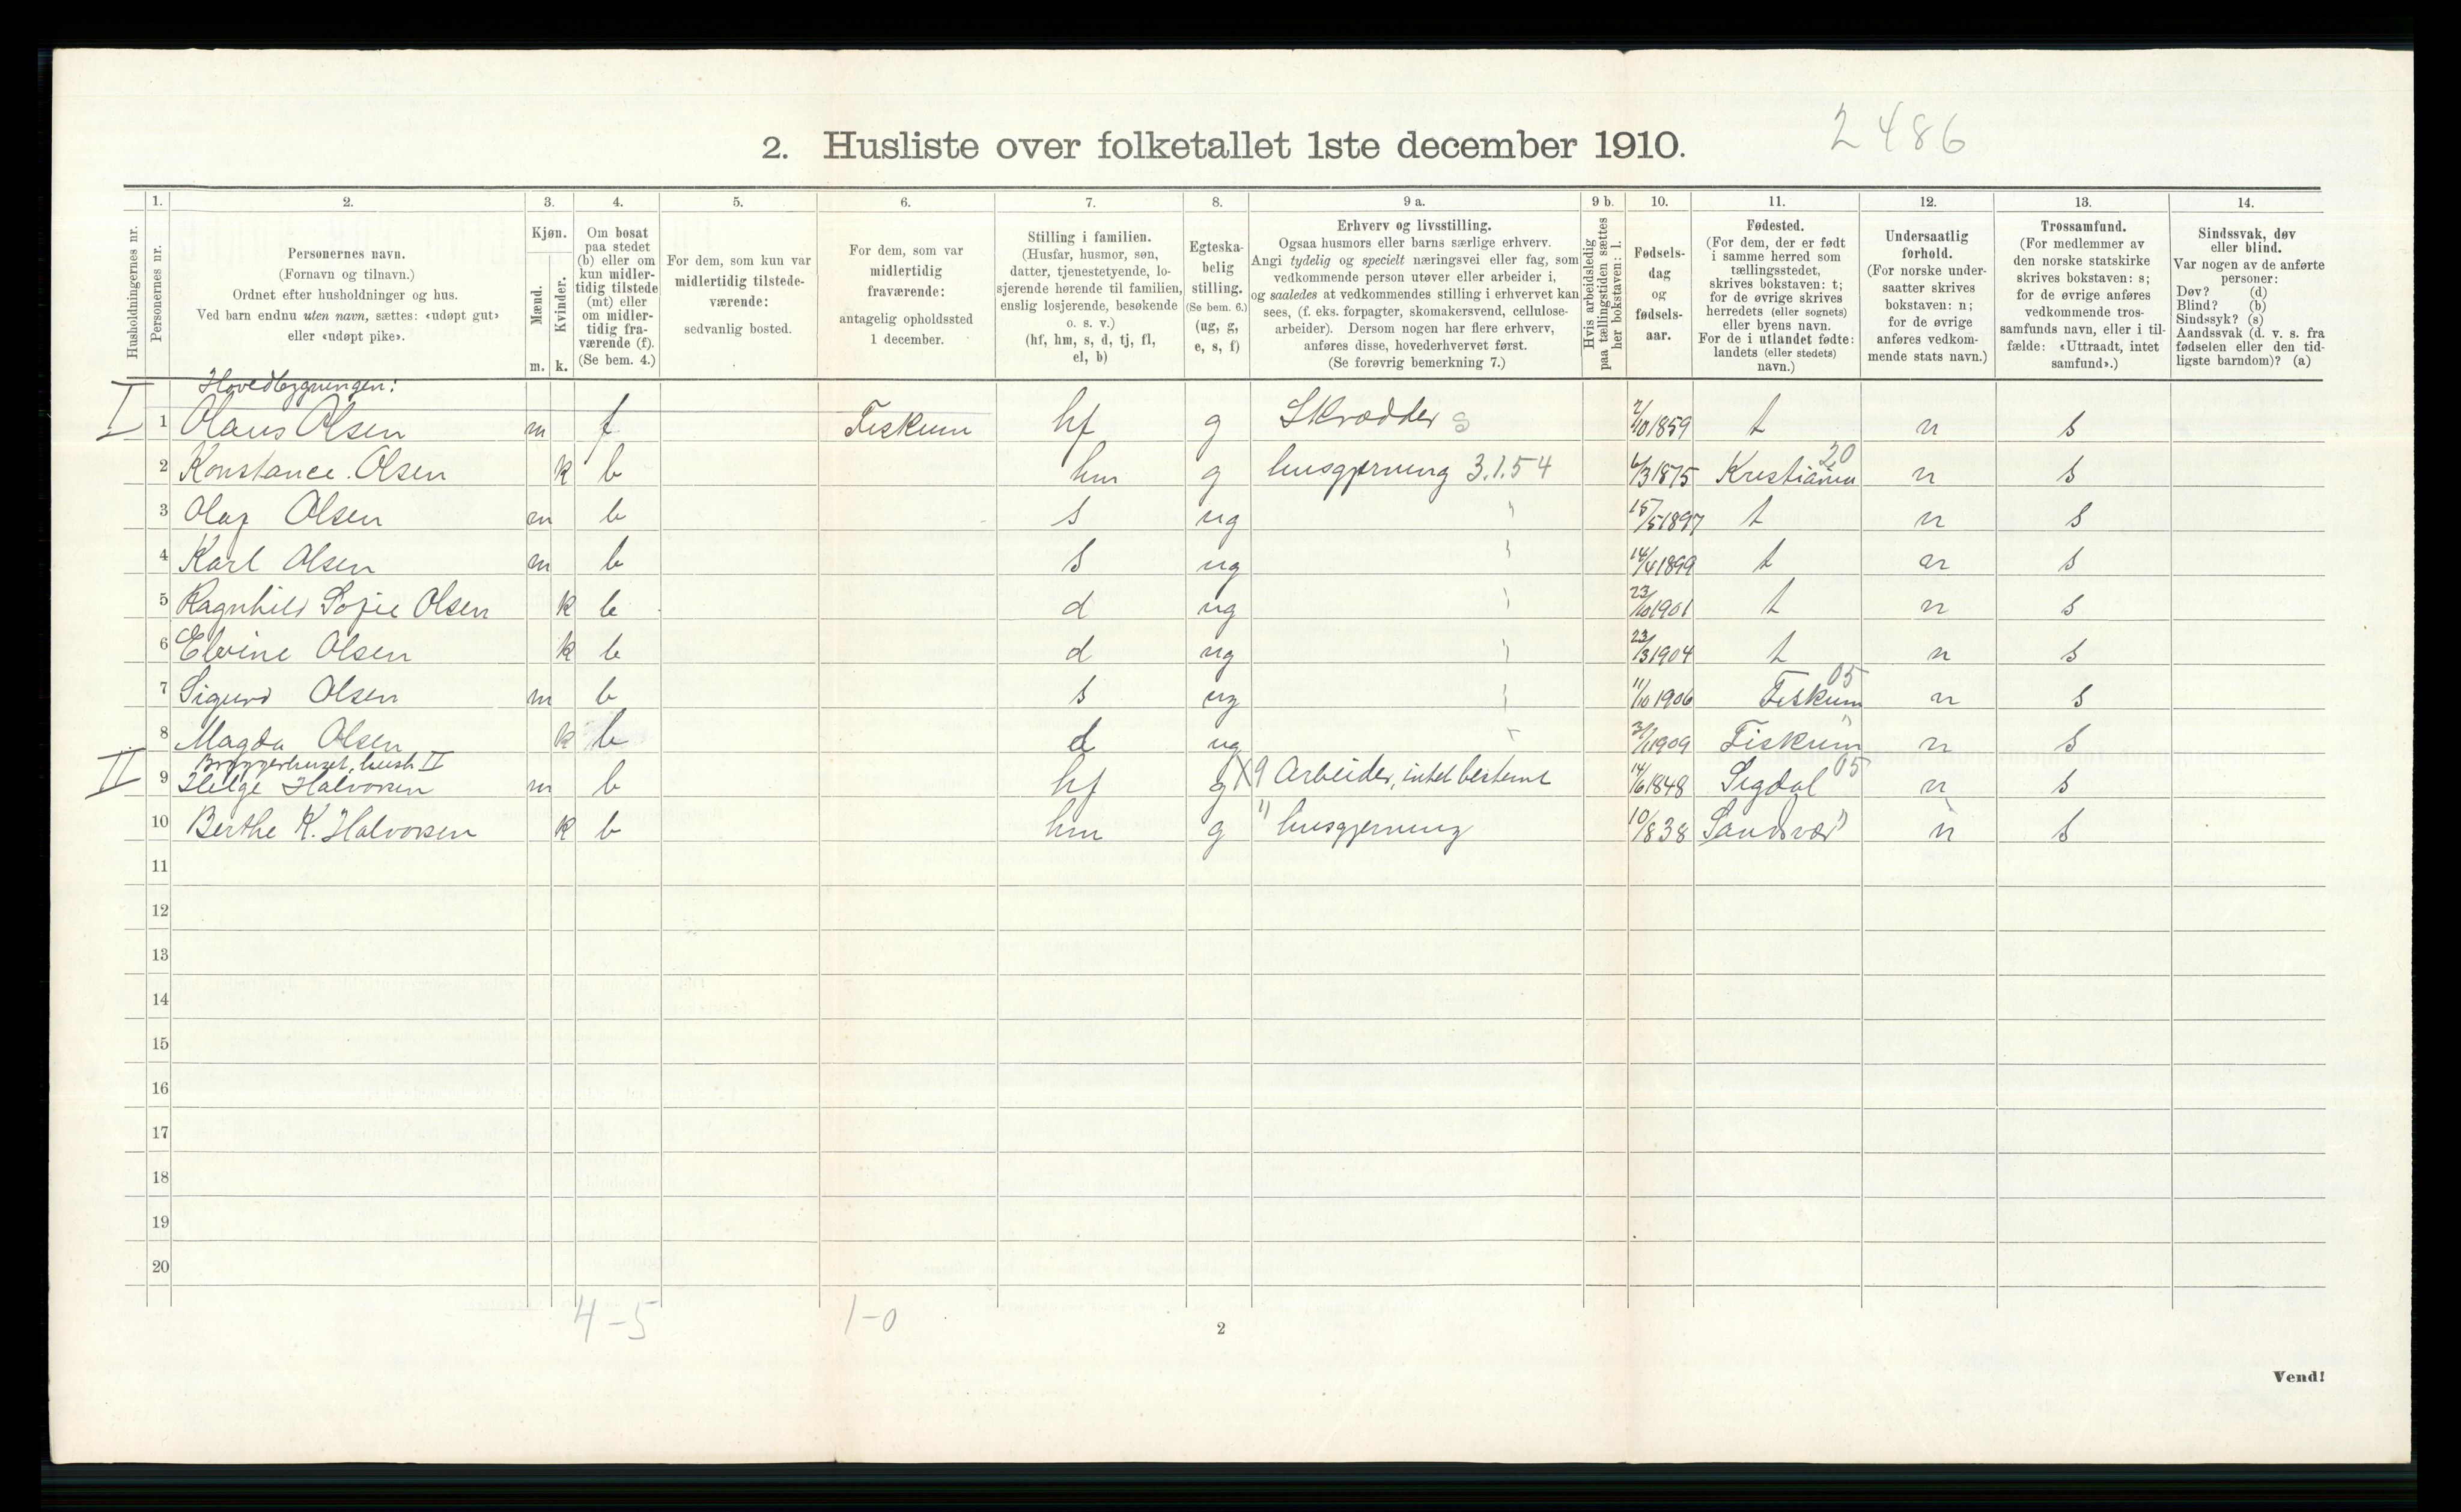 2486
2. Husliste over folketallet 1ste december 1910.
Husholdningernes nr.
1. Personernes nr.
2. Personernes navn. (Fornavn og tilnavn.) Ordnet efter husholdninger og hus. Ved barn endnu uten navn, sættes: «udøpt gut» eller «udøpt pike».
3. Kjøn. Mænd. m. Kvinder. k.
4. Om bosat paa stedet (b) eller om kun midlertidig tilstede (mt) eller om midlertidig fraværende (f). (Se bem. 4.)
5. For dem, som kun var midlertidig tilstedeværende: sedvanlig bosted.
6. For dem, som var midlertidig fraværende: antagelig opholdssted 1 december.
7. Stilling i familien. (Husfar, husmor, søn, datter, tjenestetyende, losjerende hørende til familien, enslig losjerende, besøkende o. s. v.) (hf, hm, s, d, tj, fl, el, b)
8. Egteskabelig stilling. (Se bem. 6.) (ug, g, e, s, f)
9 a. Erhverv og livsstilling. Ogsaa husmors eller barns særlige erhverv. Angi tydelig og specielt næringsvei eller fag, som vedkommende person utøver eller arbeider i, og saaledes at vedkommendes stilling i erhvervet kan sees, (f. eks. forpagter, skomakersvend, cellulosearbeider). Dersom nogen har flere erhverv, anføres disse, hovederhvervet først. (Se forøvrig bemerkning 7.)
9 b. Hvis arbeidsledig paa tællingstiden sættes her bokstaven: l.
10. Fødselsdag og fødselsaar.
11. Fødested. (For dem, der er født i samme herred som tællingsstedet, skrives bokstaven: t; for de øvrige skrives herredets (eller sognets) eller byens navn. For de i utlandet fødte: landets (eller stedets) navn.)
12. Undersaatlig forhold. (For norske undersaatter skrives bokstaven: n; for de øvrige anføres vedkommende stats navn.)
13. Trossamfund. (For medlemmer av den norske statskirke skrives bokstaven: s; for de øvrige anføres vedkommende trossamfunds navn, eller i tilfælde: «Uttraadt, intet samfund».)
14. Sindssvak, døv eller blind. Var nogen av de anførte personer: Døv? (d) Blind? (b) Sindssyk? (s) Aandssvak (d. v. s. fra fødselen eller den tidligste barndom)? (a)
Hovedbygningen:
I 1 Olaus Olsen m f Fiskum hf g Skrædder s 2/10 1859 t n s
2 Konstance Olsen k b hm g husgjerning 3.1.54 6/3 1875 Kristiania 20 n s
3 Olaf Olsen m b s ug " 15/5 1897 t n s
4 Karl Olsen m b s ug " 14/4 1899 t n s
5 Ragnhild Sofie Olsen k b d ug " 23/10 1901 t n s
6 Elvine Olsen k b d ug " 23/3 1904 t n s
7 Sigurd Olsen m b s ug " 11/10 1906 Fiskum 05 n s
8 Magda Olsen k b d ug " 1909 Fiskum " n s
Bryggerhuset, hush II
II 9 Helge Halvorsen m b hf g X9 Arbeider, intet bestemt 14/6 1848 Sigdal 05 n s
10 Berthe K. Halvorsen k b hm g " husgjerning 10/8 38 Sandsvær " n s
11
12
13
14
15
16
17
18
19
20
4-5 1-0
2
Vend!